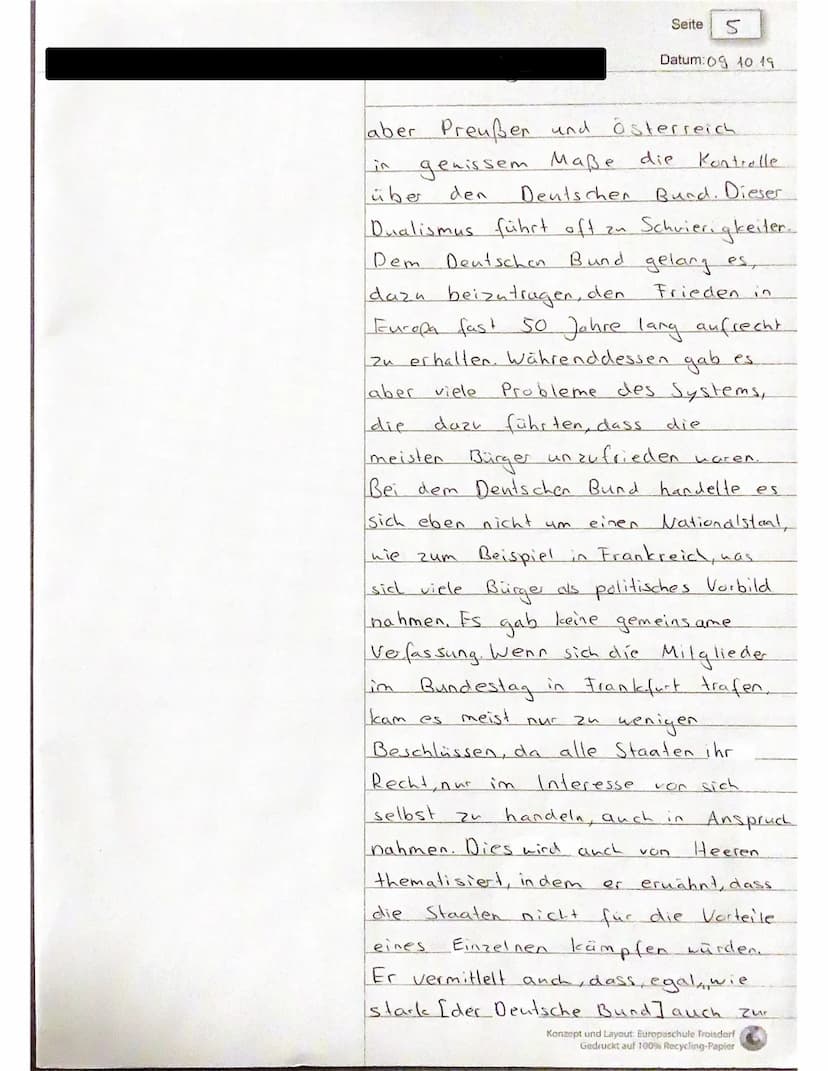 Seite 5
Datum: 09 10 19
aber Preußen und Österreich
in gewissem Maße die Kontrolle
über den Deutschen Bund. Dieser
Dualismus führt oft zu Schwierigkeiten.
Dem Deutschen Bund gelang es,
dazu beizutragen, den Frieden in
Europa fast 50 Jahre lang aufrecht
zu erhalten. Währenddessen gab es
aber viele Probleme des Systems,
die dazu führten, dass die
meisten Bürger unzufrieden waren.
Bei dem Deutschen Bund handelte es
sich eben nicht um einen Nationalstaat,
wie zum Beispiel in Frankreich, was
sich viele Bürger als politisches Vorbild
nahmen. Es gab keine gemeinsame
Verfassung. Wenn sich die Mitglieder
im Bundestag in Frankfurt trafen,
kam es meist nur zu wenigen
Beschlüssen, da alle Staaten ihr
Recht, nur im Interesse von sich
selbst zu handeln, auch in Anspruch
nahmen. Dies wird auch von Heeren
thematisiert, indem er erwähnt, dass
die Staaten nicht für die Vorteile
eines Einzelnen kämpfen würden.
Er vermittelt auch, dass, egal „wie
stark [der Deutsche Bund] auch zur
Konzept und Layout: Europaschule Troisdorf
Gedruckt auf 100% Recycling-Papier